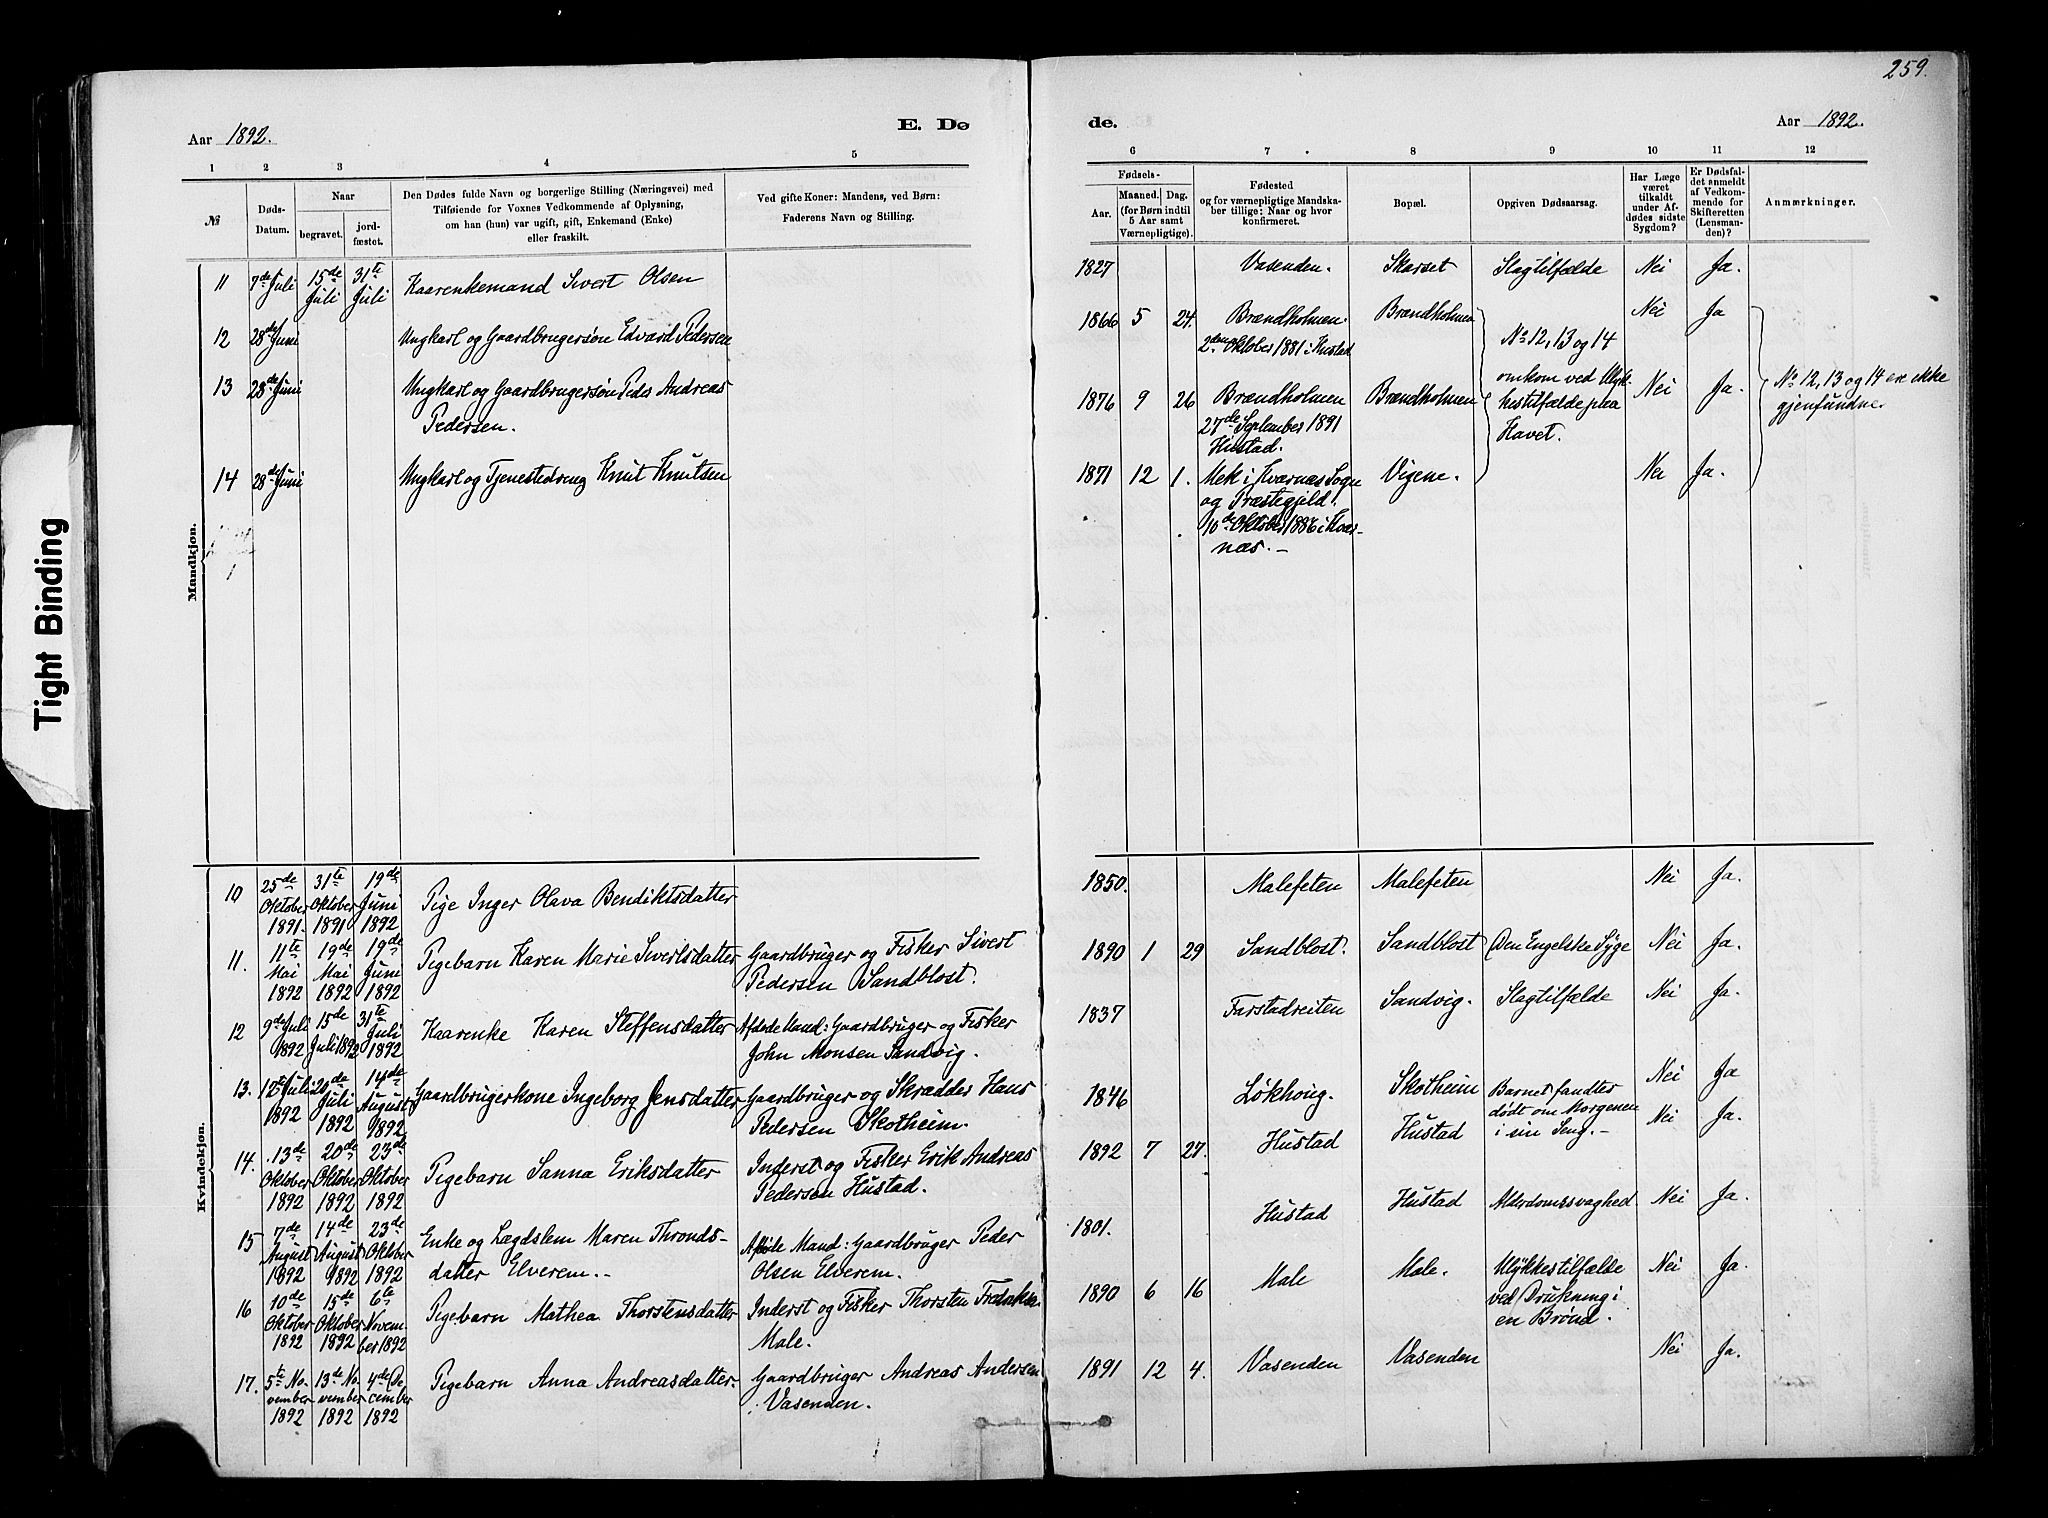 259.
Aar 1892.
E. Dø
de.
Aar 1892.
1 2 3 4 5
6 7 8 9 10 11 12
№
Døds-
Datum.
Naar
begravet.
jord-
fæstet.
Den Dødes fulde Navn og borgerlige Stilling (Næringsvei) med
Tilføiende for Voxnes Vedkommende af Oplysning,
om han (hun) var ugift, gift, Enkemand (Enke)
eller fraskilt.
Ved gifte Koner: Mandens, ved Børn:
Faderens Navn og Stilling.
Fødsels-
Aar.
Maaned. Dag.
(for Børn indtil
5 Aar samt
Værnepligtige).
Fødested
og for værnepligtige Mandska-
ber tillige: Naar og hvor
konfirmeret.
Bopæl.
Opgiven Dødsaarsag.
Har Læge
været
tilkaldt
under Af-
dødes sidste
Sygdom?
Er Dødsfal-
det anmeldt
af Vedkom-
mende for
Skifteretten
(Lensman-
den)?
Anmærkninger.
Tight Binding
Mandkjøn.
11 7de Juli 15de Juli 31te Juli Kaarenkemand Sivert Olsen
1827 Vasenden. Skarset Slagtilfælde Nei Ja.
12 28de Juni Ungkarl og Gaardbrugersøn Edvard Pedersen
1866 5 24. Brændholmen. Brændholmen Nei Ja
2den Oktober 1881 i Hustad
№ 12, 13 og 14
omkom ved Ulyk-
kestilfælde paa
Havet.
13 28de Juni Ungkarl og Gaardbrugersøn Peder Andreas
Pedersen.
1876 9 26 Brændholmen Brændholmen Nei Ja.
27de September 1891
Hustad.
№ 12, 13 og 14 ere ikke
gjenfundne.
14 28de Juni Ungkarl og Tjenestedreng Knut Knutsen
1871 12 1. Mek i Kværnæs Sogn Vigene. Nei Ja.
og Præstegjeld.
10de Oktober 1886 i Kvær-
næs.-
Kvindekjøn.
10 25de Oktober 1891. 31te Oktober 1891 19de Juni 1892 Pige Inger Olava Bendiktsdatter
1850. Malefeten Malefeten Nei Ja.
11. 11te Mai 1892 19de Mai 1892 19de Juni 1892 Pigebarn Karen Marie Sivertsdatter Gaardbruger og Fisker Sivert
Pedersen Sandblost.
1890 1 29 Sandblost. Sandblost Den Engelske Syge Nei Ja.
12 9de Juli 1892 15de Juli 1892 31te Juli 1892 Kaarenke Karen Steffensdatter Afdøde Mand: Gaardbruger og Fisker
John Monsen Sandvig.
1837 Farstadreiten Sandvig. Slagtilfælde Nei Ja.
13. 12te Juli 1892 20de Juli 1892 14de August 1892 Gaardbrugerkone Ingeborg Jensdatter Gaardbruger og Skrædder Hans
Pedersen Skotheim.
1846 Løkhoug. Skotheim Nei Ja
14. 13de Oktober 1892 20de Oktober 1892 23de Oktober 1892 Pigebarn Sanna Eriksdatter Inderst og Fisker Erik Andreas
Pedersen Hustad.
1892 7 27. Hustad Hustad Barnet fandtes
dødt om Morgenen
i sin Seng.- Nei Ja.
15 7de August 1892 14de August 1892 23de Oktober 1892 Enke og Lægdslem Maren Thronds-
datter Elverem.- Afdøde Mand: Gaardbruger Peder
Olsen Elverem.
1801. Hustad Hustad Alderdomssvaghed Nei Ja.
16 10de Oktober 1892 15de Oktober 1892 6te November 1892 Pigebarn Mathea Thorstensdatter Inderst og Fisker Thorsten Fredriksen
Male.
1890 6 16 Male Male. Ulykkestilfælde
ved Drukning i
en Brønd. Nei Ja.
17. 5te November 1892 13de November 1892 4de December 1892 Pigebarn Anna Andreasdatter. Gaardbruger Andreas Andersen
Vasenden.
1891 12 4. Vasenden Vasenden Nei Ja.